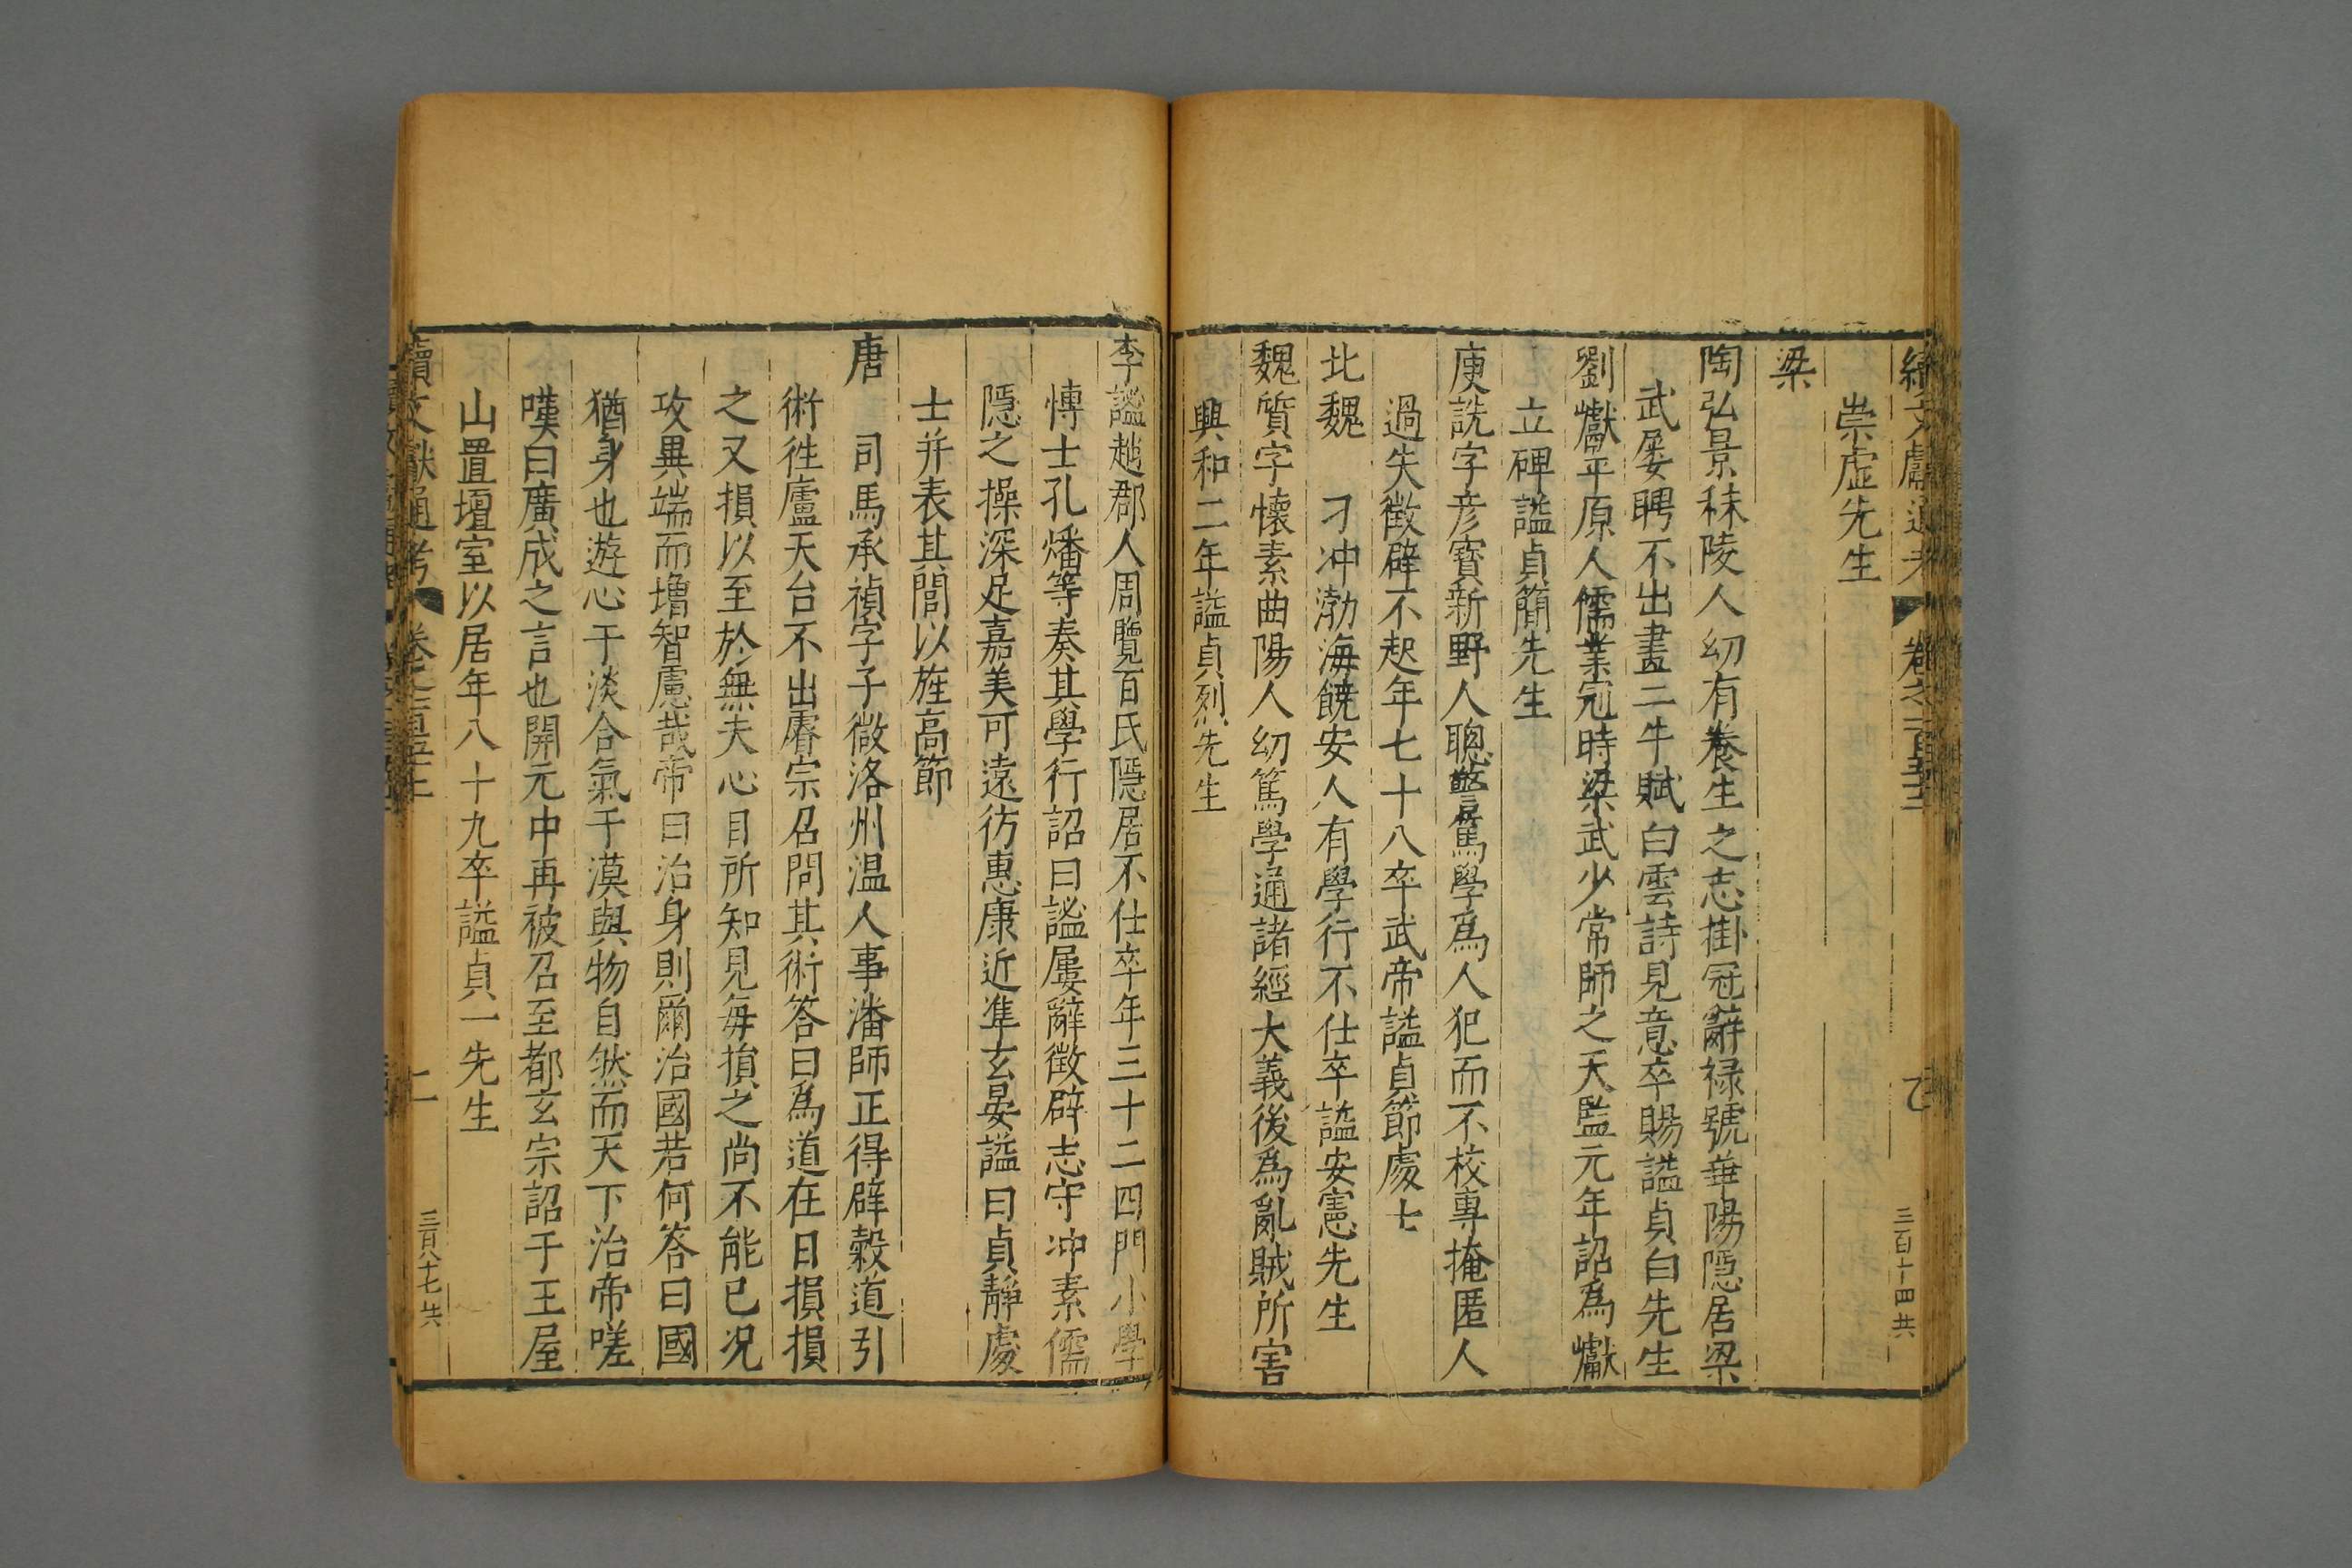 續文獻通考 卷之二百五十二 乙 三百十四共
崇虛先生
梁
陶弘景秣陵人幼有養生之志掛冠辭禄號華陽隱居梁
武屡聘不出畫二牛賦白雲詩見意卒賜謚貞白先生
劉獻平原人儒業冠時梁武少常師之天監元年詔為獻
立碑謚貞簡先生
庾詵字彦寶新野人聰警篤學爲人犯而不校專掩匿人
過失徵辟不起年七十八卒武帝謚貞節處士
北魏 刁冲渤海饒安人有學行不仕卒謚安憲先生
魏質字懷素曲陽人幼篤學通諸經大義後爲亂賊所害
興和二年謚貞烈先生
李謐越郡人周覽百氏隱居不仕卒年三十二四門小學
博士孔燔等奏其學行詔曰謐屢辭徵辟志守冲素儒
隱之操深足嘉美可遠彷惠康近準玄晏謚曰貞靜處
士并表其閭以旌高節
唐 司馬承禎字子微洛州温人事潘師正得辟穀道引
術徃廬天台不出睿宗召問其術答曰為道在日損損
之又損以至於無夫心目所知見每損之尚不能已况
攻異端而增智慮哉帝曰治身則爾治國若何答曰國
猶身也遊心于淡合氣于漠與物自然而天下治帝嗟
嘆曰廣成之言也開元中再被召至都玄宗詔于王屋
山置壇室以居年八十九卒謚貞一先生
續文獻通考 二 三百八十七共